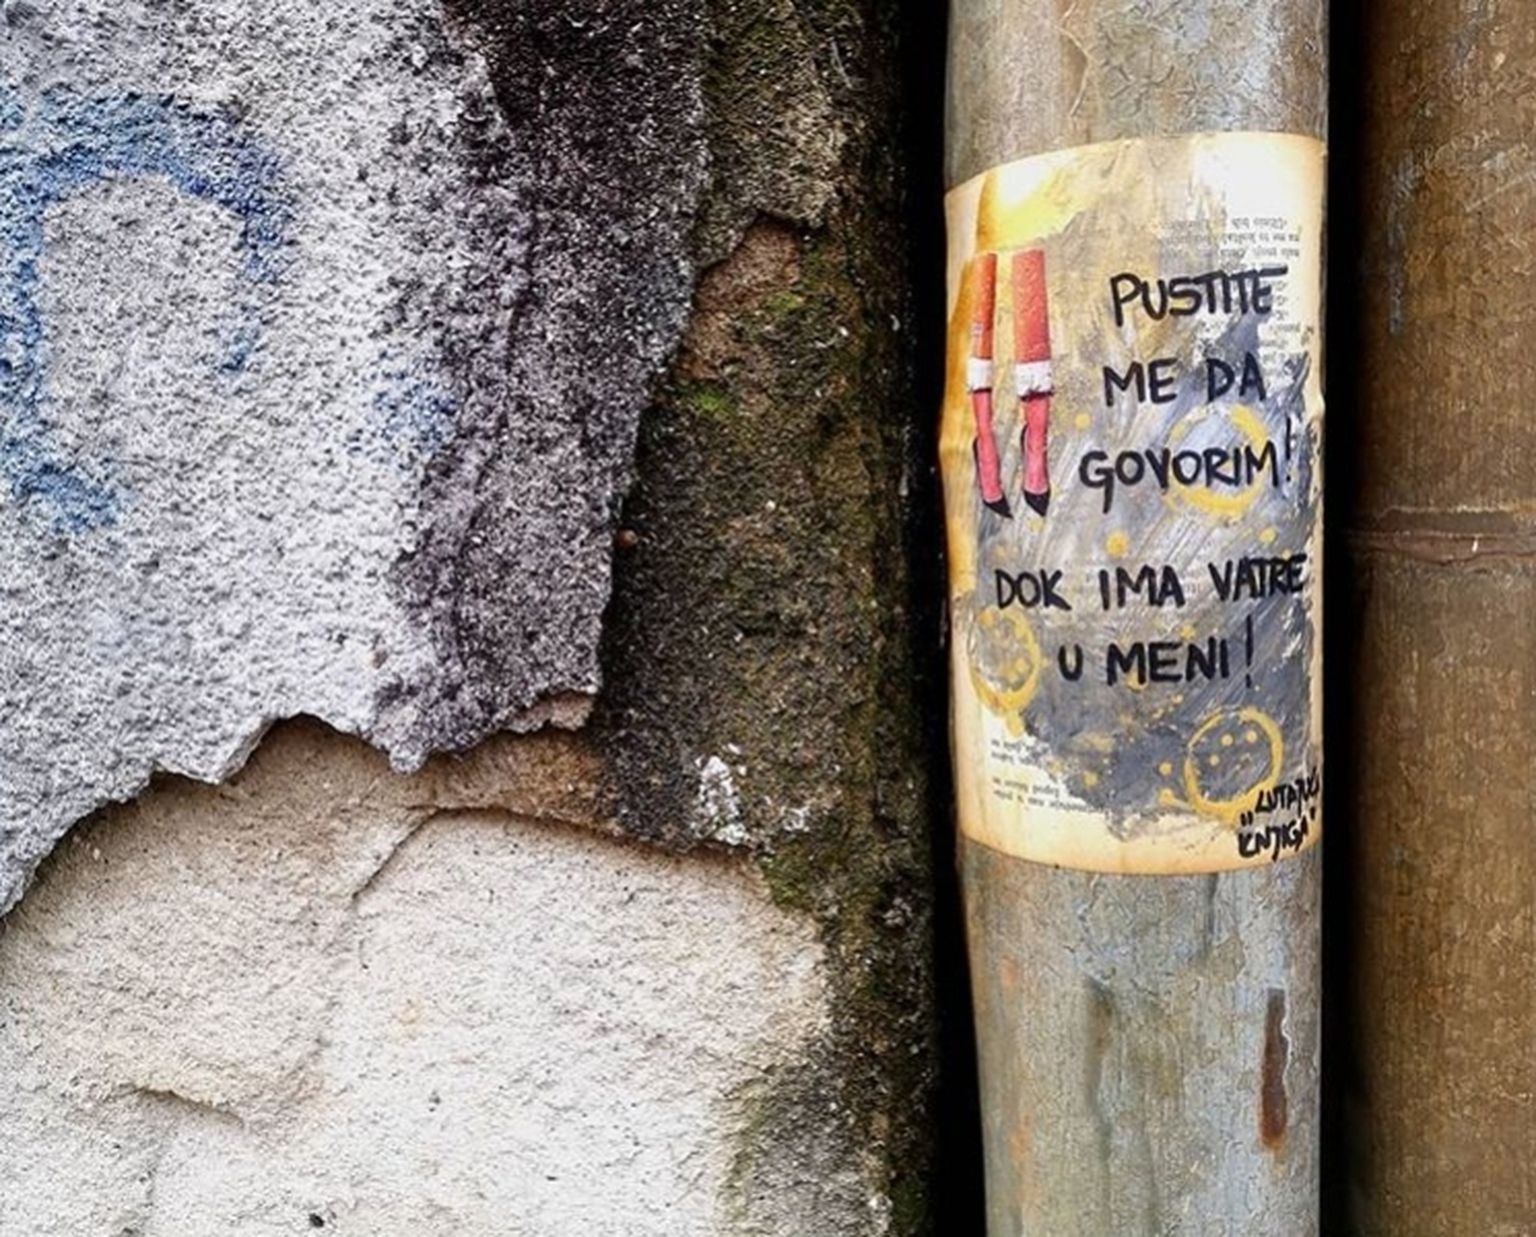 PUSTITE
ME DA
GOVORIM!
DOK IMA VATRE
U MENI!
"LUTAJUĆA
KNJIGA"